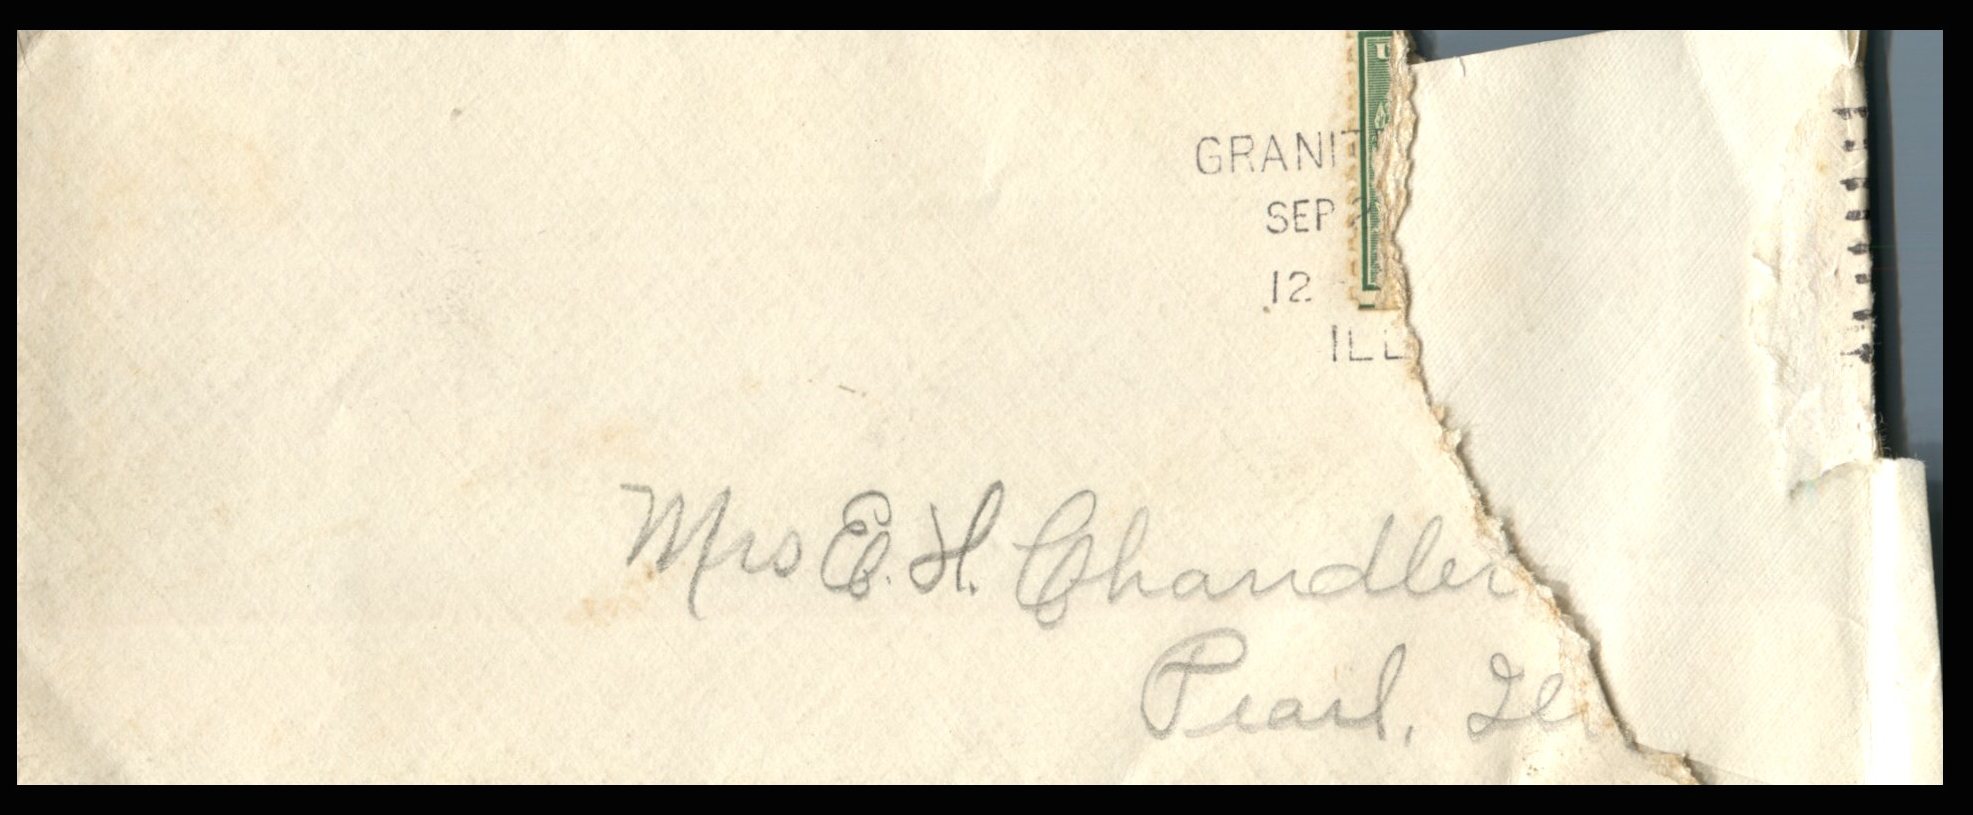 GRANIT
SEP
12
ILL
Mrs E. H. Chandler
Pearl, Ill